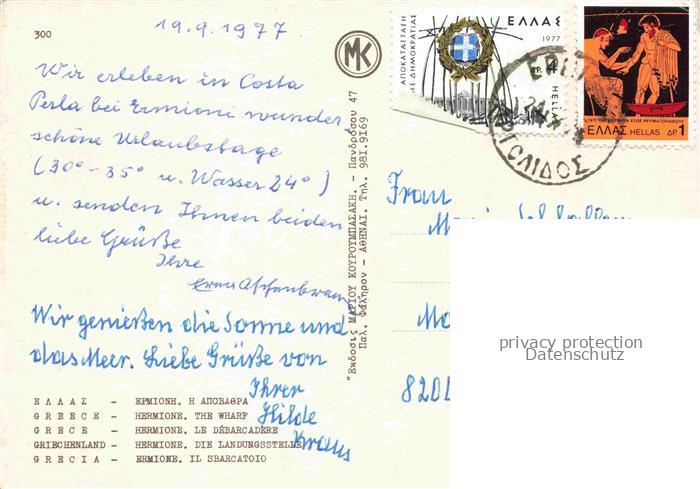 19.9.1977
300
Wir erleben in Costa
Perla bei Ermioni wunder
schöne Urlaubstage
(30°-35° u. Wasser 24°)
u. senden Ihnen beiden
liebe Grüße
Ihre
Wir genießen die Sonne und
das Meer. Liebe Grüße von
Ihrer
Hilde
Kraus
ΕΛΛΑΣ - ΕΡΜΙΟΝΗ. Η ΑΠΟΒΑΘΡΑ
GREECE - HERMIONE. THE WHARF
GRECE - HERMIONE. LE DÉBARCADÈRE
GRIECHENLAND - HERMIONE. DIE LANDUNGSSTELLE
GRECIA - ERMIONE. IL SBARCATOIO
MK
"Εκδοσις ΜΑΡΙΟΥ ΚΟΥΡΟΥΜΠΑΣΑΚΗ. - Πανδρόσου 47
Παλ. Φάληρον - ΑΘΗΝΑΙ. Τηλ. 981.9169
ΑΠΟΚΑΤΑΣΤΑΣΗ
ΤΗΣ ΔΗΜΟΚΡΑΤΙΑΣ
ΕΛΛΑΣ
1977
ΔΡ. 4
HELLAS
ΕΛΛΑΣ HELLAS ΔΡ 1
ΑΡΓΟΛΙΔΟΣ
Frau
820
privacy protection
Datenschutz